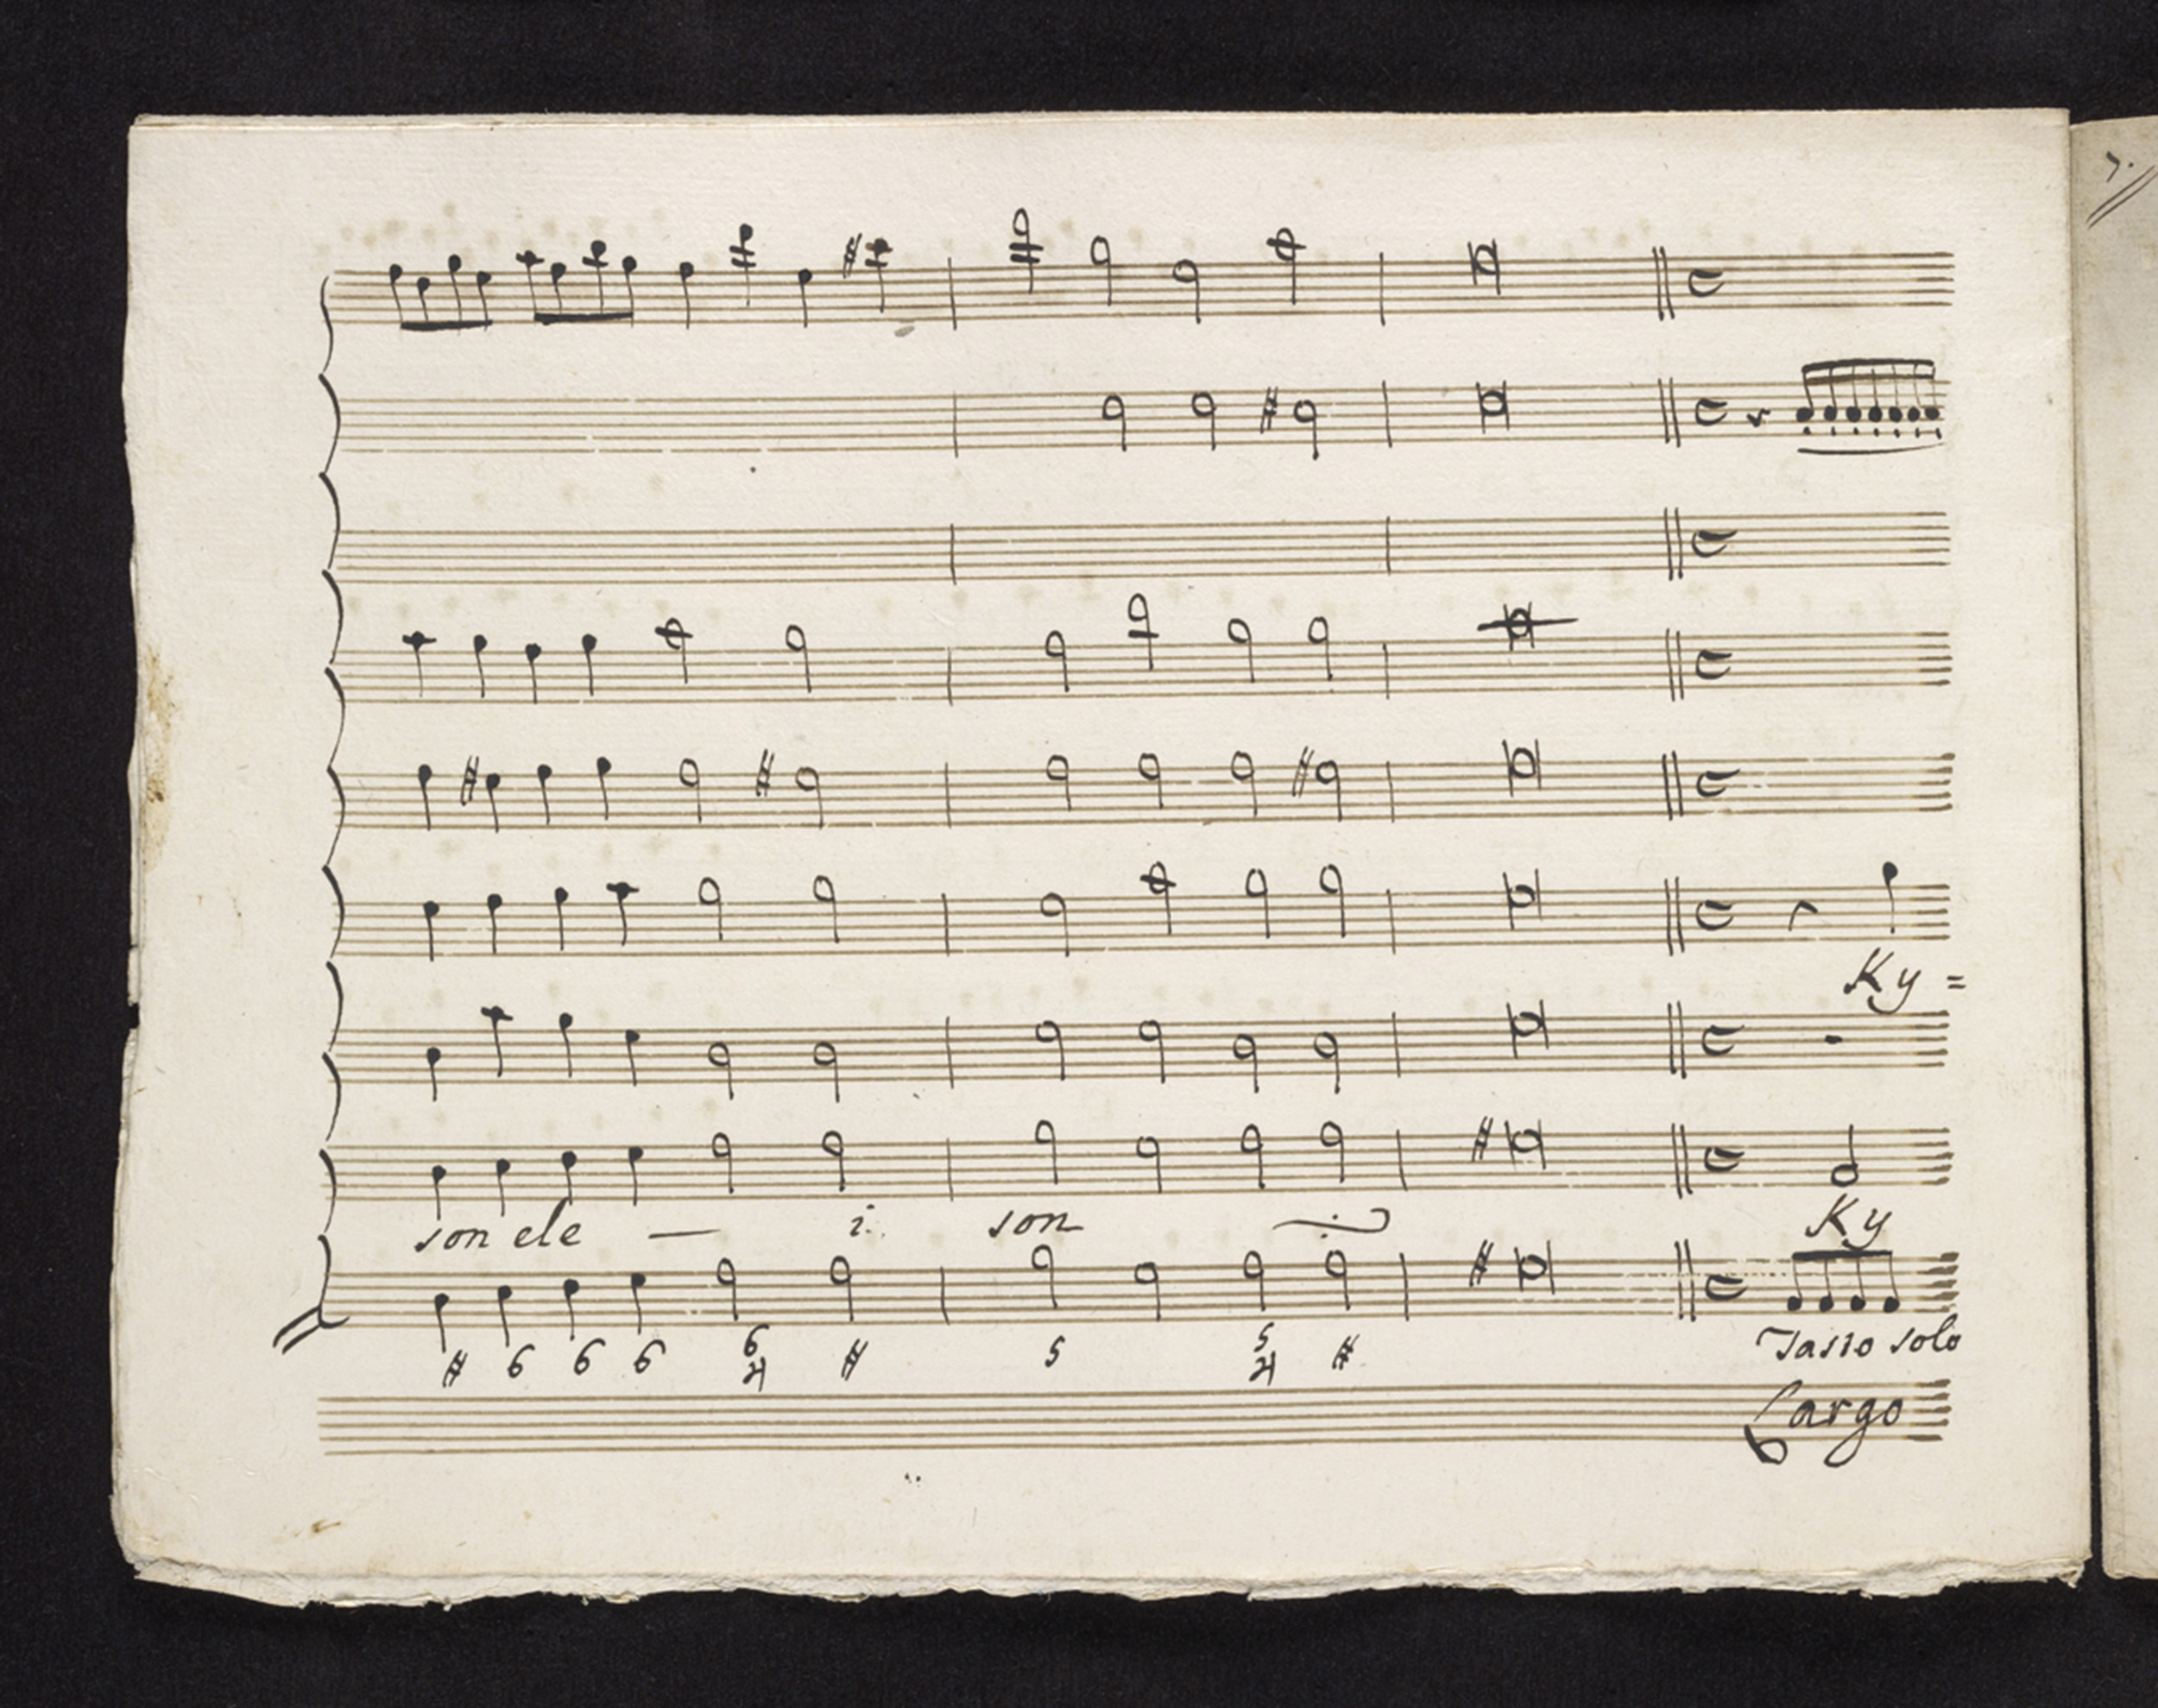 7.
Ky =
son ele — i. son Ky
# 6 6 6 6 4 # 5 5 4 #
Tasto solo
Largo